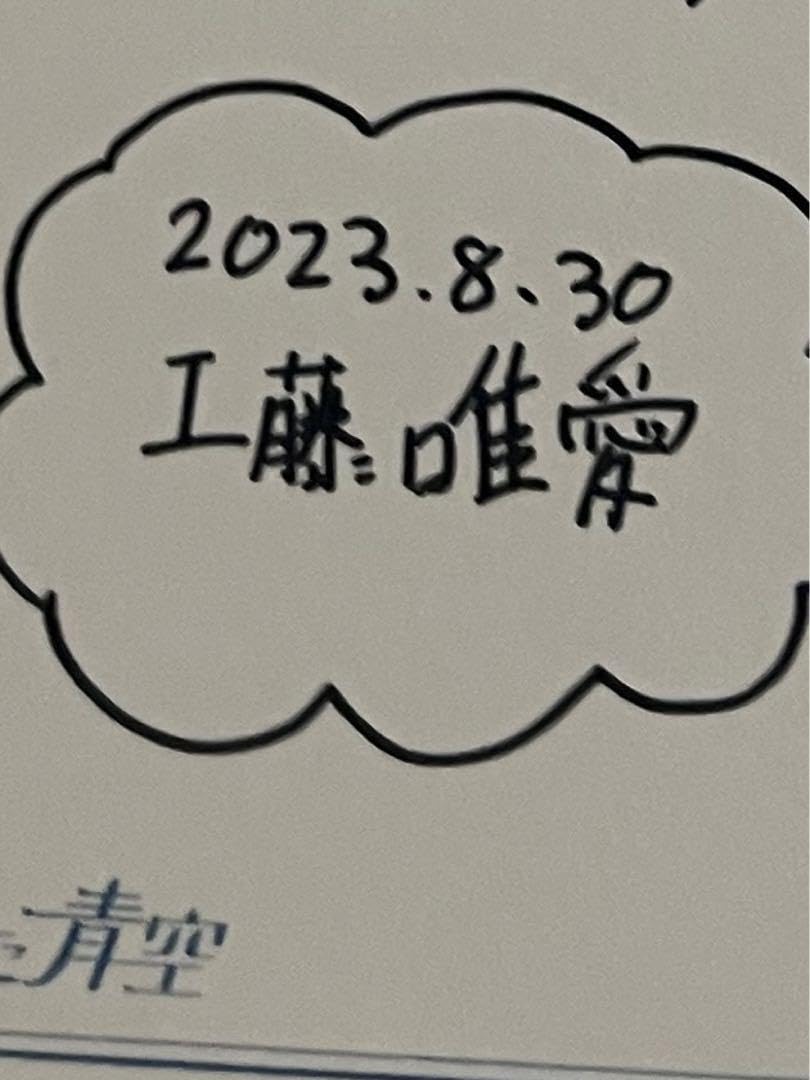 2023.8.30
工藤唯愛
青空